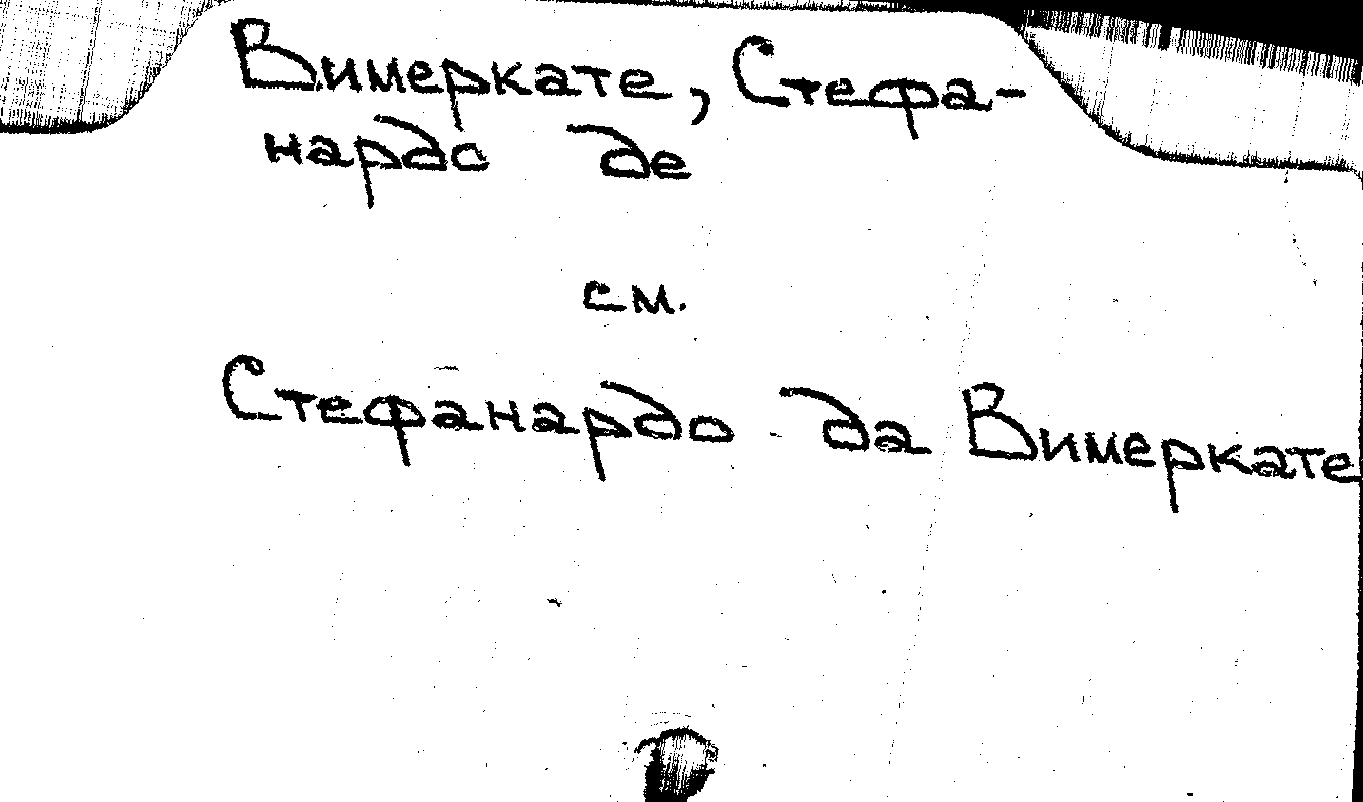 Вимеркате, Стефа-
нардо де
см.
Стефанардо да Вимеркате